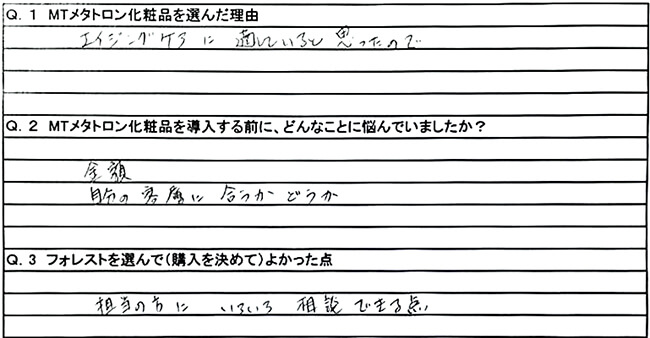 Q. 1 MTメタトロン化粧品を選んだ理由
エイジングケアに 適していると 思ったので
Q. 2 MTメタトロン化粧品を導入する前に、どんなことに悩んでいましたか？
金額
自分の客層に 合うか どうか
Q. 3 フォレストを選んで（購入を決めて）よかった点
担当の方に いろいろ 相談 できる点